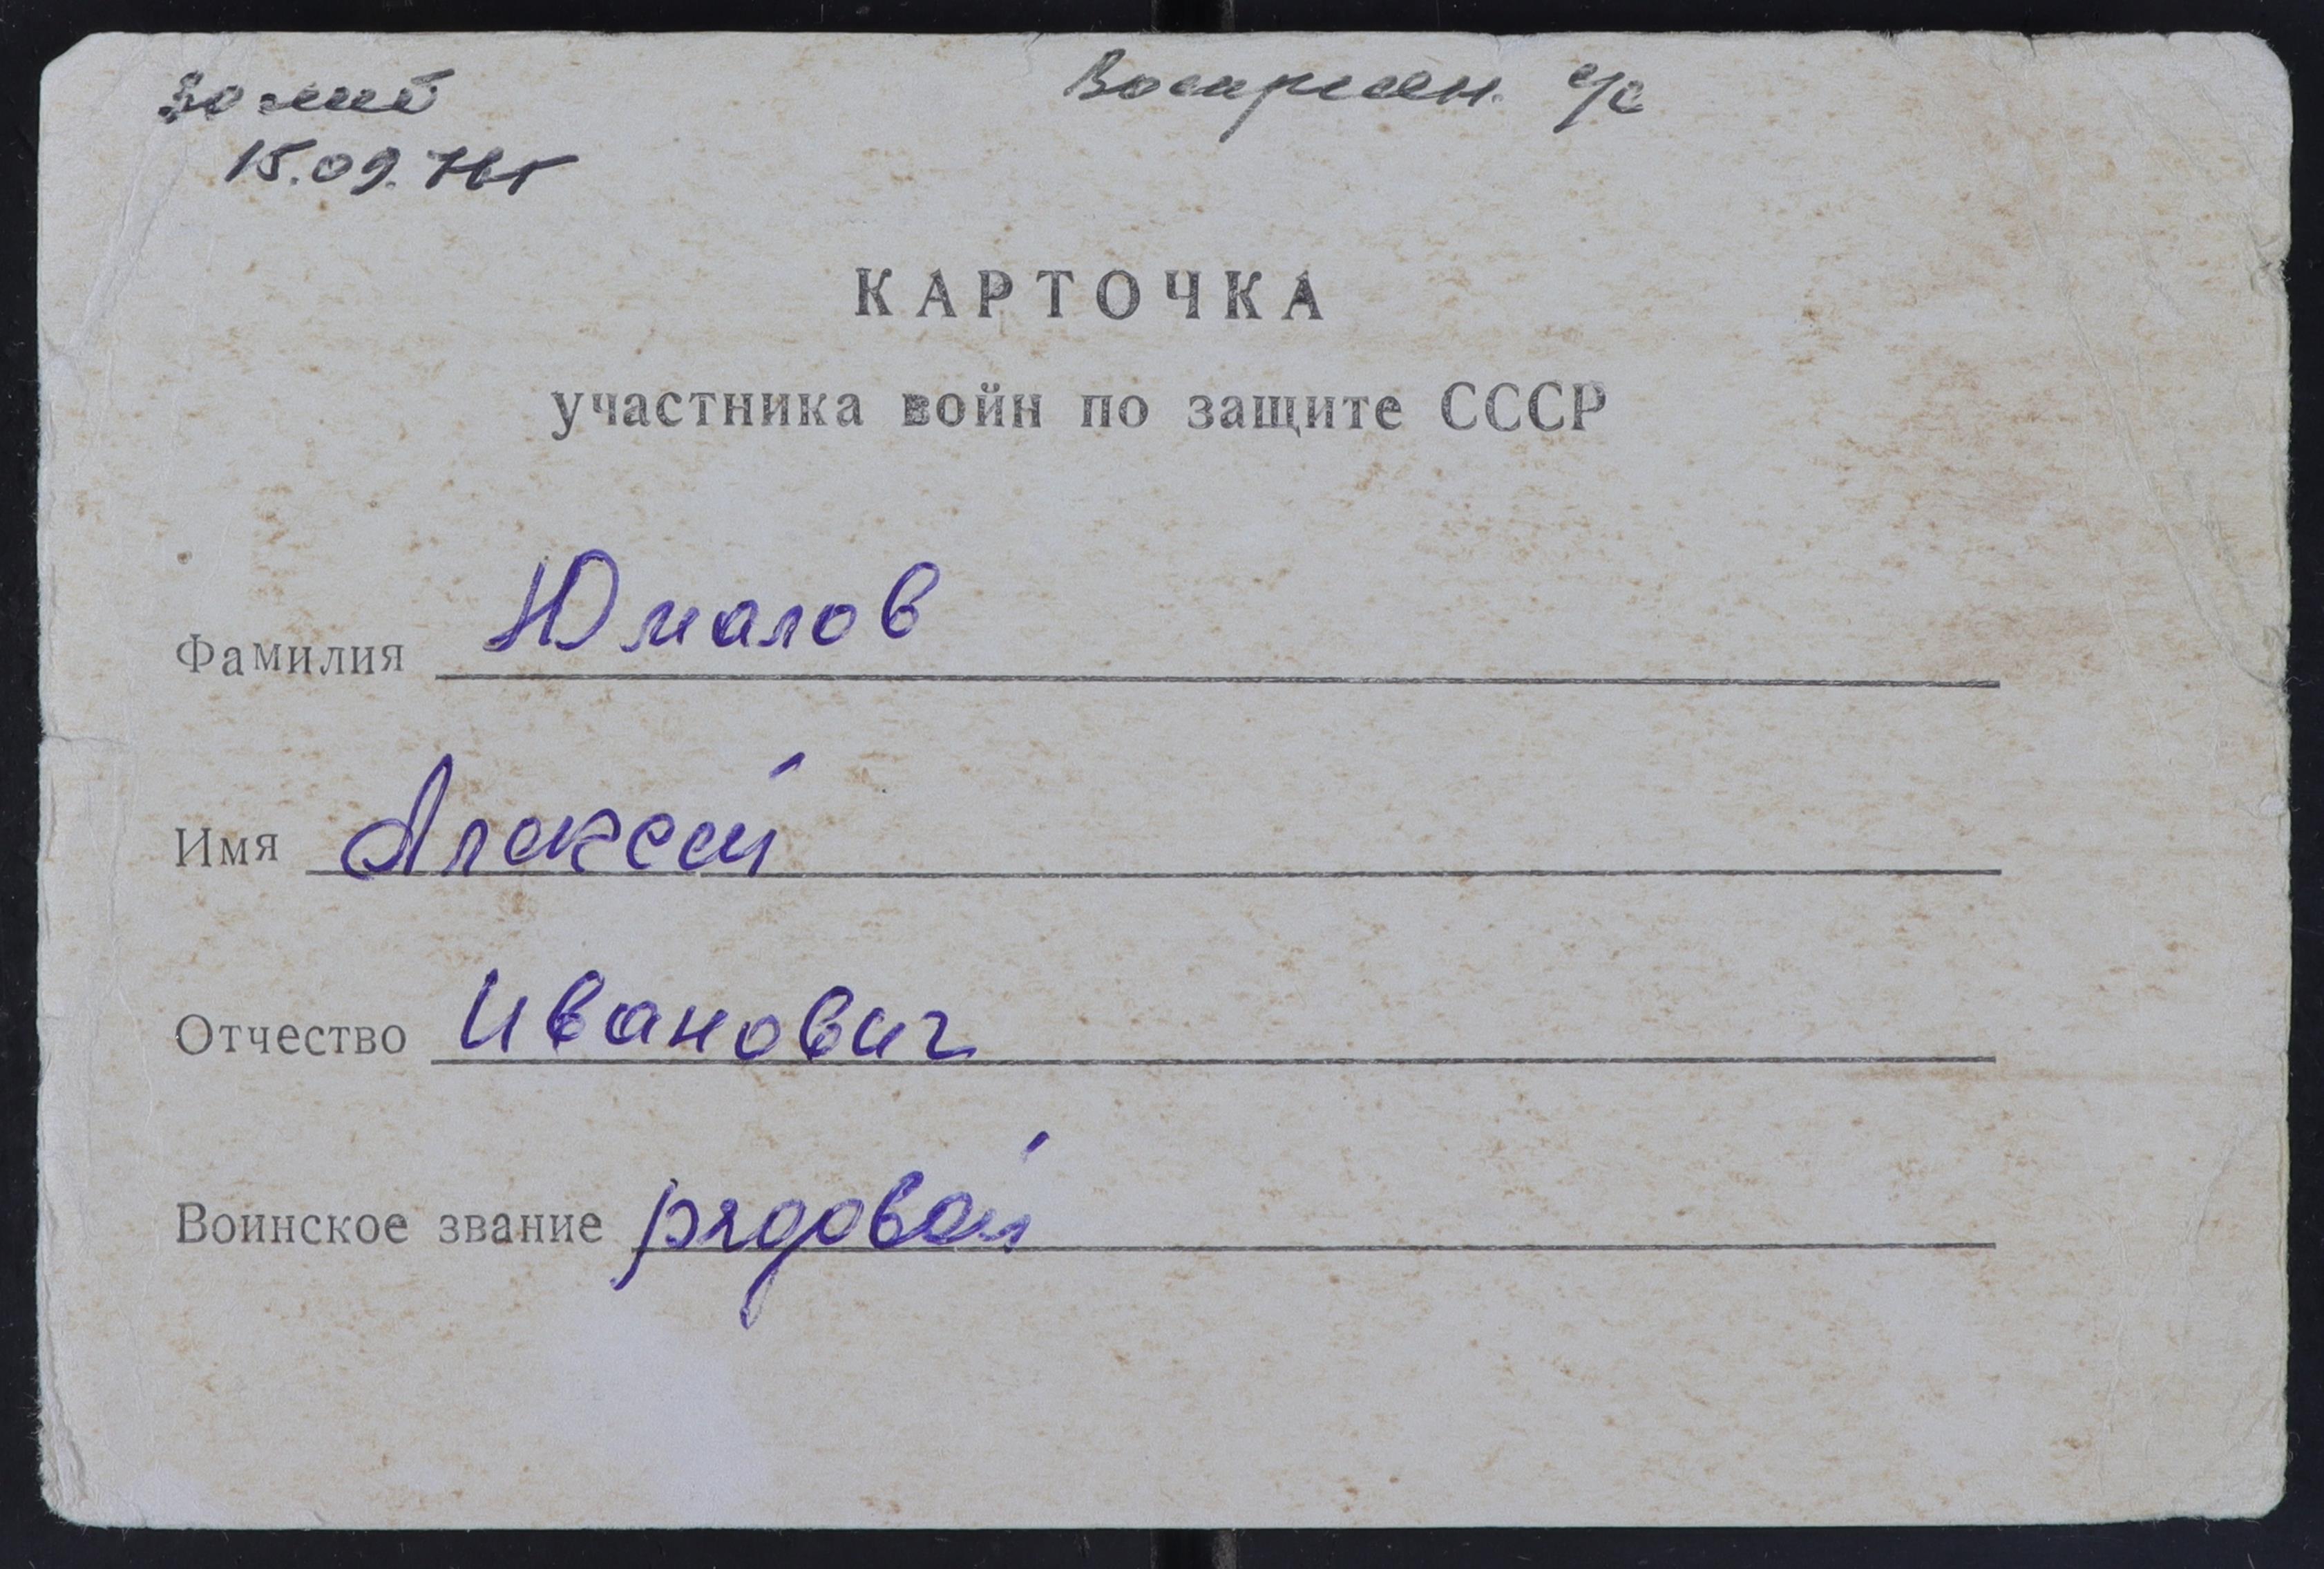 Воскресен. с/с
15.09.76г
КАРТОЧКА
участника войн по защите СССР
Фамилия Юмалов
Имя Алексей
Отчество Иванович
Воинское звание рядовой